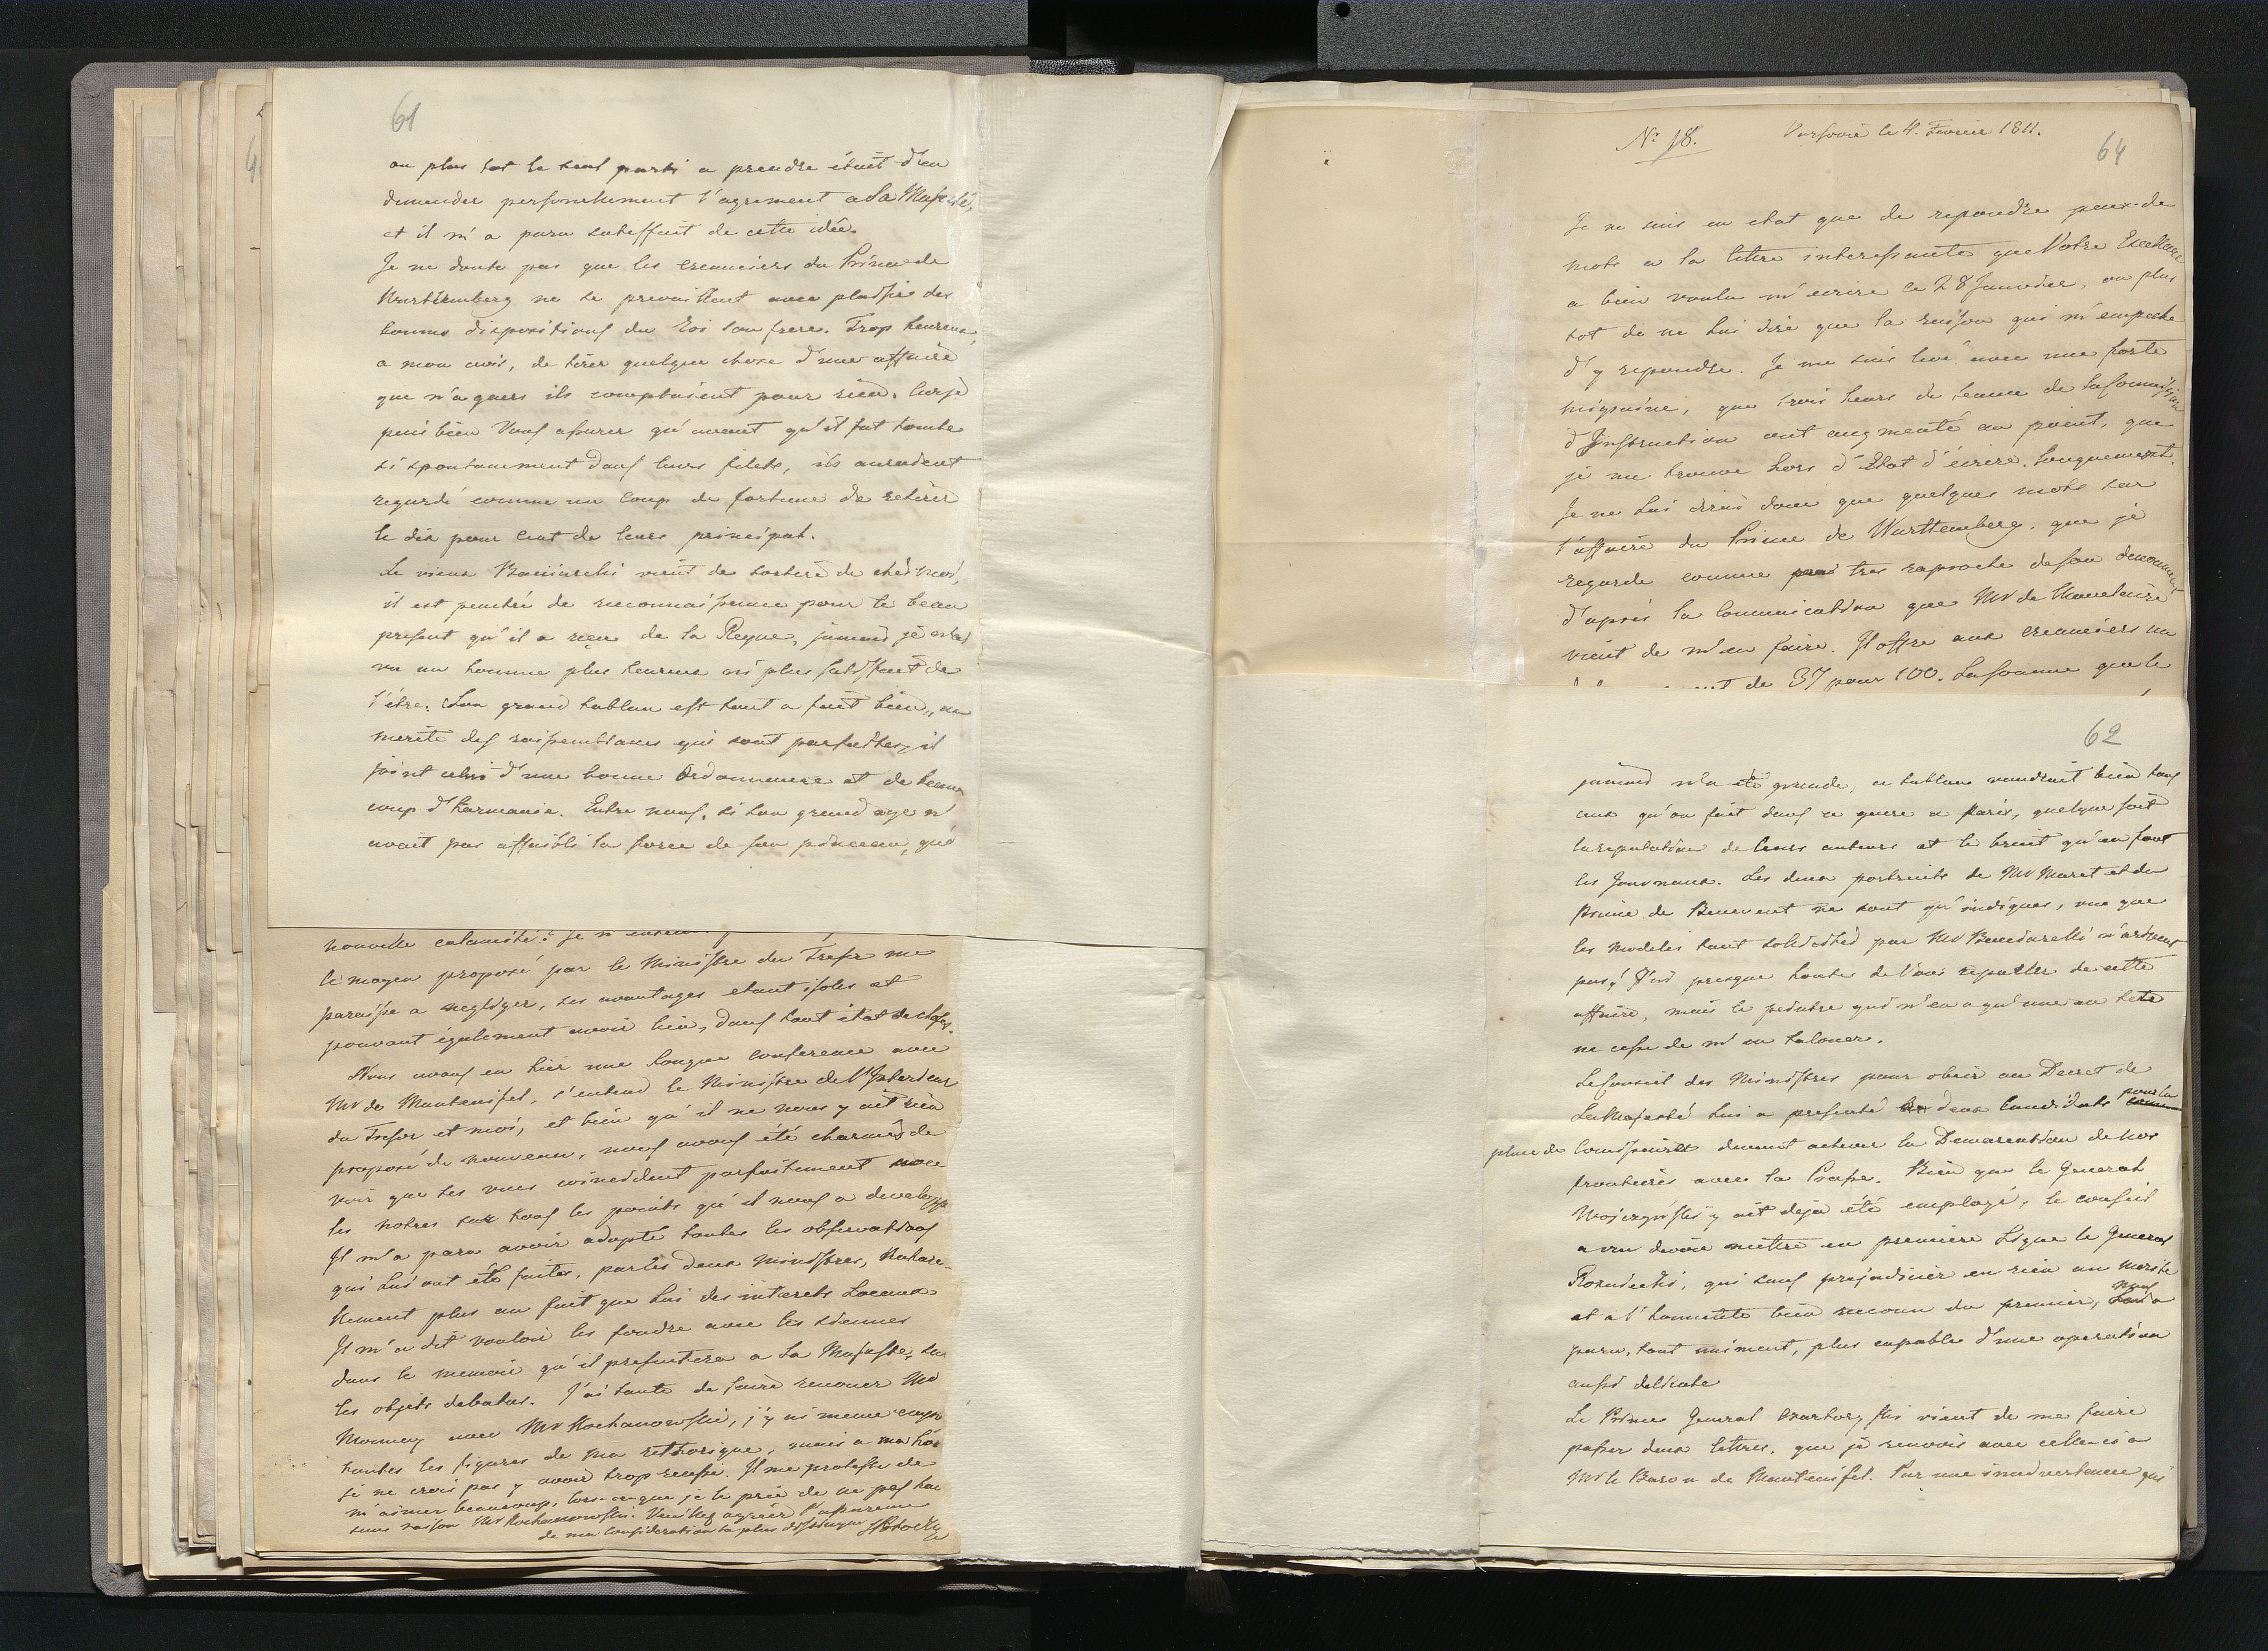 61
ou plus tot le seul parti a prendre étoit d'en
demander personelement l'agrement a Sa Majesté,
et il m'a paru satisfait de cette idée.
Je ne doute pas que les creanciers du Prince de
Wurttemberg ne se prevaillent avec plaisir des
bonnes dispositions du Roi son frere. Trop heureux
a mon avis, de tirer quelque chose d'une affaire
que n'a guers ils comptaient pour rien. Car je
puis bien Vous assurer qu'avant qu'il fut tombé
si spontanement dans leurs filets, ils auraient
regardé comme un coup de fortune de retirer
le dix pour cent de leurs principal.
Le vieux Bacciarelli vient de sortir de chez moi,
il est penetré de reconnaissance pour le beau
present qu'il a reçu de la Reyne, jamais je n'ai
vu un homme plus heureux ni plus satisfait de
l'être. Son grand tableau est tout a fait bien, au
merite des ressemblances qui sont parfaites, il
joint celui d'une bonne Ordonnance et de beau
coup d'harmonie. Entre nous, si son grand age n'
avait pas affaibli la force de son pinceau, qui
nouvelle calamité?
le moyen proposé par le Ministre du Tresor me
paraisse a negliger, ses avantages etant isolés et
pouvant également avoir lieu, dans tout état de choses.
Nous avons eu hier une longue conference avec
Mr de Manteuffel, s'entend le Ministre de l'Interieur
du Tresor et moi, et bien qu'il ne nous y ait rien
proposé de nouveau, nous avons été charmés de
voir que ses vues coincident parfaitement avec
les notres sur tous les points qu'il nous a developpé
Il m'a paru avoir adopté toutes les observations
qui lui ont été faites, par les deux ministres, naturel-
lement plus au fait que lui des interets Locaux
Il m'a dit vouloir les fondre avec les siennes
dans le memoire qu'il presentera a Sa Majesté, sur
les objets debatus. J'ai tenté de faire renouer Mr
avec Mr Kochanowski, j'y ai meme
toutes les figures de ma rethorique, mais a ma
je ne crois pas y avoir trop reussi. Il me proteste de
m'aimer beaucoup, lors-ce que je le prie de ne pas
sans raison Mr Kochanowski. Veuillez agréer l'assurance
de ma consideration la plus distinguée SPotocki
Nº 18. Varsovie le 4. Fevrier 1811.
64
Je ne suis en etat que de repondre peux de
mots a la lettre interessante que Votre Excellence
a bien voulu m'ecrire le 28 Janvier, ou plus
tot de ne lui dire que la raison qui m'empeche
d'y repondre. Je me suis levé avec une forte
migraine, que trois heurs de seance de la Commission
d'Instruction ont augmenté au point, que
je me trouve hors d'Etat d'écrire longuement.
Je ne lui dirai donc que quelques mots sur
l'affaire du Prince de Wurttemberg, que je
regarde comme tres raproché de son denoument
d'après la communication que Mr de
vient de m'en faire. Il offre aux creanciers un
de 37 pour 100. La somme que le
62
jamais n'a été grande, ce tableau vaudrait bien tous
ceux qu'on fait dans ce genre a Paris, quelque soit
la reputation de leurs auteurs et le bruit qu'en font
les Journaux. Les deux portraits de Mr Maret et du
Prince de Benevent ne sont qu'indiqués, vu que
les modeles tant sollicités par Mr Bacciarelli n'arrivent
pas! J'ai presque honte de Vous reparler de cette
affaire, mais le peintre qui n'en a qu'une en tete
ne cesse de m'en talonner.
Le Conseil des Ministres pour obeir au Decret de
Sa Majesté lui a presenté deux Candidats pour la
place de Commissaires devant achever la Demarcation de nos
frontieres avec la Prusse. Bien que le General
Woyczynski y ait deja été employé, le conseil
a cru devoir mettre en premiere Ligne le General
Rozniecki, qui sans prejudicier en rien au merite
et a l'honneteté bien reconnu du premier, nous a
paru, tout uniment, plus capable d'une operation
aussi delicate
Le Prince General Czartoryski vient de me faire
passer deux lettres, que je renvois avec celle-ci a
Mr le Baron de Manteuffel. Par une inadvertance qui